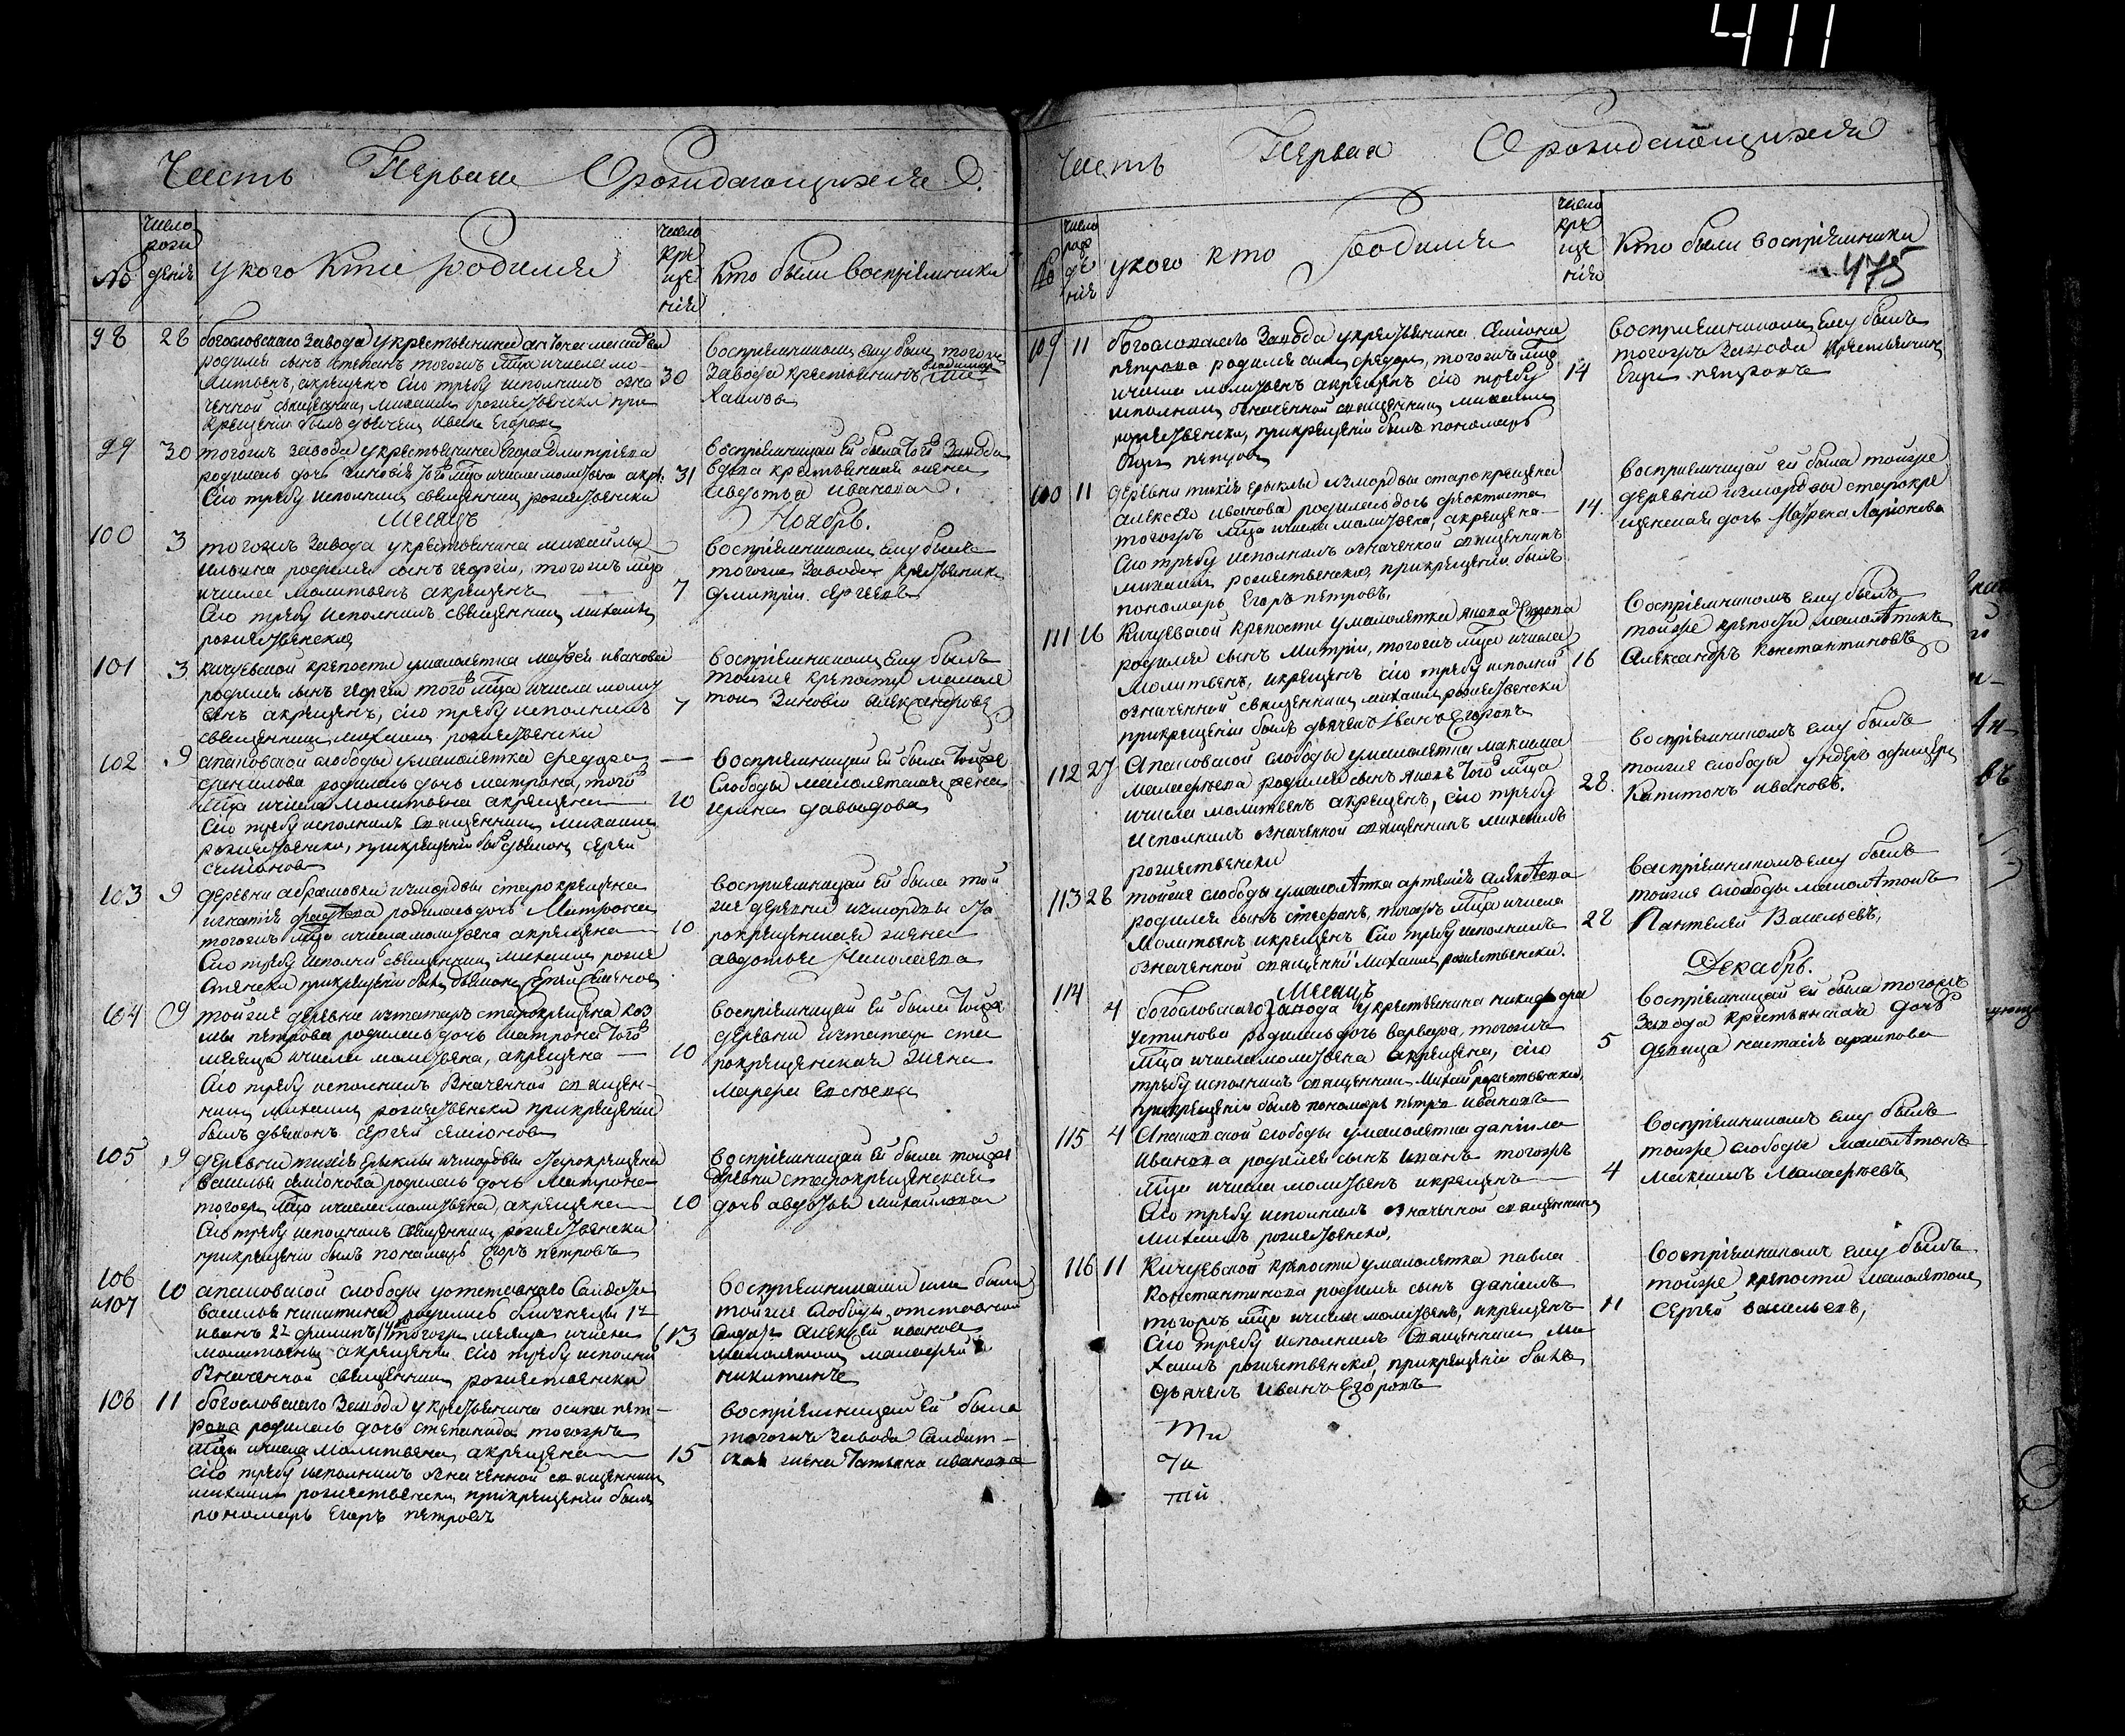 411
Часть Первая О рождающихся
№
число рождения
у кого кто родился
число крещения
кто были восприемники
98
28
богословскаго завода укрестьянина антона
родился сынъ степанъ тогожъ мца ичисла мо-
литвенъ, акрещенъ сию требу исполнилъ озна
ченной священникъ михаилъ рожественски при
крещении былъ дьячекъ иванъ Егоровъ
30
восприемникомъ ему былъ тогоже
завода крестьянинъ владимиръ ми-
хаиловъ
99
30
тогожъ завода укрестьянина Егора дмитриева
родилась дочь зиновия того мца ичисла молитвена акре:
сию требу исполнилъ священникъ рожественски
31
восприемницей ей была того завода
вдова крестьянская жена
авдотья иванова
Месяцъ Ноябрь.
100
3
тогожъ завода укрестьянина михайлы
ильина родился сынъ георгии, тогожъ мца
ичисла молитвенъ акрещенъ
сию требу исполнилъ священникъ михаилъ
рожественски
7
восприемникомъ ему былъ
тогоже завода крестьянинъ
дмитрии сергеевъ
101
3
кичуевской крепости умалолетка ивановa
родился сынъ георгии того мца ичисла молит
венъ акрещенъ, сию требу исполнилъ
священникъ михаилъ рожественски
7
восприемникомъ ему былъ
тойже крепости малоле
токъ зиновей александровъ
102
9
спасовской слободы умалолетка федора
данилова родилась дочь матрона, того
мца ичисла молитвена акрещена
сию требу исполнилъ священникъ михаилъ
рожественски, прикрещении былъ дьяконъ сергей
семионовъ
10
восприемницей ей была тойже
слободы малолетская жена
ирина давыдова
103
9
деревни абрамовки измордвы старокрещена
игнатия фадеева родилась дочь Матрона
тогожъ мца ичисла молитвена акрещена
сию требу исполнилъ священникъ михаилъ роже
ственски прикрещении былъ дьяконъ Сергей Семеновъ
10
восприемницей ей была той
же деревни измордвы ста
рокрещенская жена
авдотья Николаева
104
9
тойже деревни изтатаръ старокрещена коз
мы петрова родилась дочь матрона того
месяца ичисла молитвена, акрещена
сию требу исполнилъ означенной священ-
никъ михаилъ рожественски прикрещении
былъ дьяконъ сергей семионовъ
10
восприемницей ей была тойже
деревни изтатаръ ста
рокрещенская жена
марфа
105
9
деревни тихия Ерыклы измордвы старокрещена
василья семионова родилась дочь Матрона
тогожъ мца ичисла молитвена, акрещена
сию требу исполнилъ священникъ рожественски
прикрещении былъ пономарь Егоръ петровъ
10
восприемницей ей была тойже
деревни старокрещенская
дочь авдотья михаилова
106
и107
10
спасовской слободы уотставнаго салдата
василья никитина родились близнецы 1й
иванъ 2й филипъ тогожъ месяца ичисла
молитвены акрещены сию требу исполнилъ
означенной священникъ рожественски
13
восприемниками им были
тойже слободы отставной
салдатъ алексей ивановъ
малолетокъ малафей
никитинъ
108
11
богословскаго завода укрестьянина осипа пет-
рова родилась дочь степанида тогожъ
мца ичисла молитвена, акрещена
сию требу исполнилъ означенной священникъ
михаилъ рожественски прикрещении былъ
пономарь Егоръ петровъ
15
восприемницей ей была
тогожъ завода салдат-
ская жена Татьяна иванова
Часть Первая О рождающихся
№
число рождения
у кого кто родился
число крещения
кто были восприемники
475
109
11
богословскаго завода укрестьянина семиона
петрова родился сынъ федоръ, тогожъ мца
ичисла молитвенъ акрещенъ сию требу
исполнилъ означенной священникъ михаилъ
рожественски, прикрещении былъ пономарь
Егоръ петровъ
14
восприемникомъ ему былъ
тогожъ завода крестьянинъ
Егоръ петровъ
100
11
деревни тихия ерыклы измордвы старокрещена
алексея иванова родилась дочь феоктиста
тогожъ мца ичисла молитвена, акрещена
сию требу исполнилъ означенной священникъ
михаилъ рожественски, прикрещении былъ
пономарь Егоръ петровъ.
14.
восприемницей ей была тойже
деревни измордвы старокре
щенская дочь Мавра Ларионова
111
16
Кичуевской крепости умалолетка якова Егорова
родился сынъ Митрии, тогожъ мца ичисла
молитвенъ, икрещенъ сию требу исполнилъ
означенной священникъ михаилъ рожественски
прикрещении былъ дьячекъ Иванъ Егоровъ
16
восприемникомъ ему былъ
тойже крепости малолетокъ
Александръ Константиновъ
112
27
Спасовской слободы умалолетка максима
малафеева родился сынъ яковъ того мца
ичисла молитвенъ акрещенъ, сию требу
исполнилъ означенной священникъ михаилъ
рожественски
28.
восприемникомъ ему былъ
тойже слободы ундеръ офицеръ
Капитонъ ивановъ.
113
28
тойже слободы умалолетка артемия алексеева
родился сынъ стефанъ, тогожъ мца ичисла
молитвенъ икрещенъ сию требу исполнилъ
означенной священникъ Михаилъ рожественски.
28
восприемникомъ ему былъ
тойже слободы малолетокъ
Пантелей Васильевъ,
Месяцъ Декабрь.
114
4
богословскаго завода укрестьянина никифора
устинова родилась дочь варвара, тогожъ
мца ичисла молитвена акрещена, сию
требу исполнилъ священникъ Михаилъ рожественски,
прикрещении былъ пономарь петръ ивановъ
5
восприемницей ей была тогожъ
завода крестьянская дочь
девица настасия архипова
115
4
Спасовской слободы умалолетка данила
иванова родился сынъ иванъ тогожъ
мца ичисла молитвенъ икрещенъ
сию требу исполнилъ означенной священникъ
михаилъ рожественски,
4
восприемникомъ ему былъ
тойже слободы малолетокъ
максимъ малафеевъ
116
11
Кичуевской крепости умалолетка павла
константинова родился сынъ даниилъ
тогожъ мца ичисла молитвенъ, икрещенъ
сию требу исполнилъ священникъ ми
хаилъ рожественски, прикрещении былъ
дьячекъ иванъ Егоровъ
11
восприемникомъ ему былъ
тойже крепости малолетокъ
Сергей васильевъ,